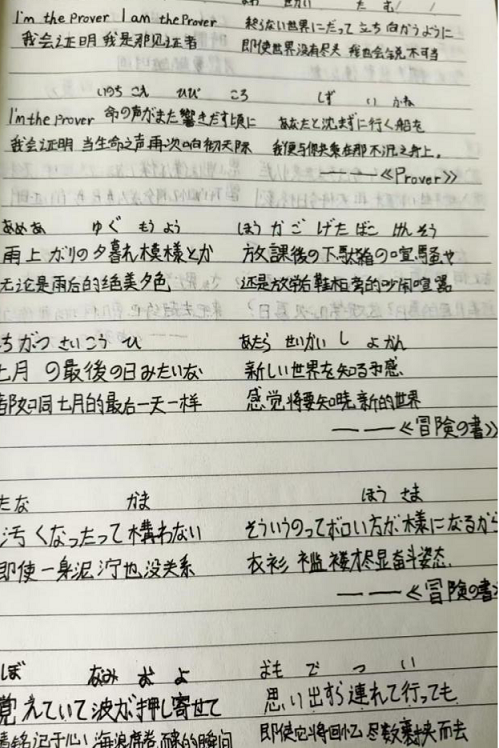 せかい た む
I'm the Prover I am the Prover 終らない世界にだって立ち向かうように
我会证明 我是那见证者 即使世界没有尽头 我也会锐不可当
いのち こえ ひび ころ しず い ふね
I'm the Prover 命の声がまた響きだす頃に あなたと沈まずに行く船を
我会证明 当生命之声再次响彻天际 我便与你共乘在那不沉之舟上。
——《Prover》
あめあ ゆぐ もよう ほうかご げたばこ けんそう
雨上がりの夕暮れ模様とか 放課後の下駄箱の喧騒や
无论是雨后的绝美夕色 还是放学后鞋柜旁的吵闹喧嚣
ちがつ さいこう ひ あたら せいかい し よかん
七月の最後の日みたいな 新しい世界を知る予感
都如同七月的最后一天一样 感觉将要知晓新的世界
——《冒険の書》
たな かま ほう さま
汚くなったって構わない そういうのってボロい方が様になるから
即使一身泥泞也没关系 衣衫褴褛才尽显奋斗姿态
——《冒険の書》
ぼ なみ お よ おも で つ い
覚えていて波が押し寄せて 思い出すら連れて行っても
铭记于心 海浪席卷 的瞬间 即使它将回忆尽数裹挟而去